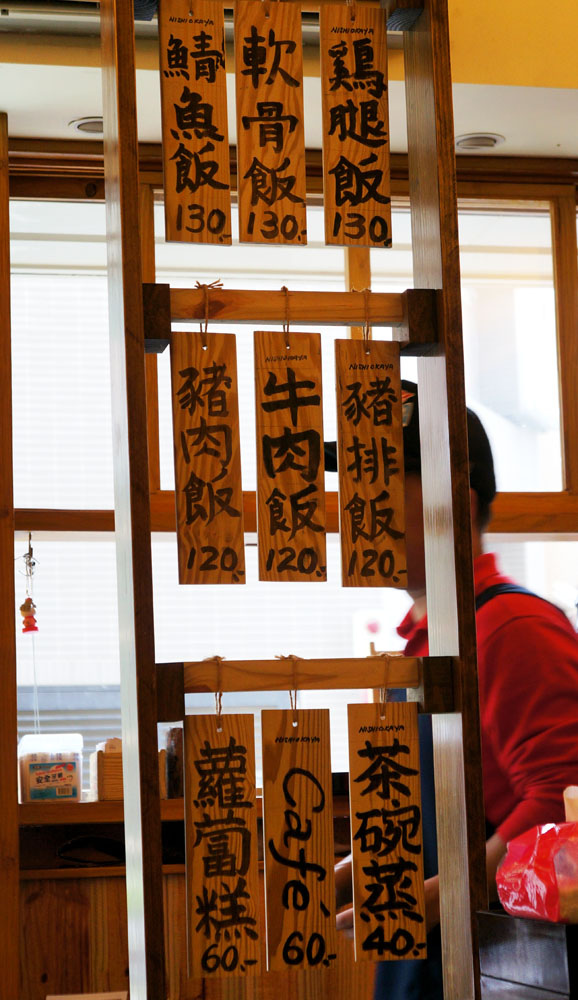 NISHIOKAYA
鯖魚飯
130.-
NISHIOKAYA
軟骨飯
130.-
NISHIOKAYA
鷄腿飯
130.-
豬肉飯
120.-
NISHIOKAYA
牛肉飯
120.-
NISHIOKAYA
豬排飯
120.-
蘿蔔糕
60.-
NISHIOKAYA
Café
60.-
NISHIOKAYA
茶碗蒸
40.-
安全牙線